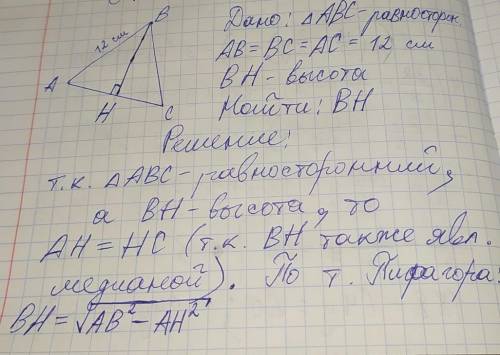 B
12 см
A
H
C
Дано: △ABC-равносторон
AB=BC=AC=12 см
BH-высота
Найти: BH
Решение:
т.к. △ABC-равносторонний,
а BH-высота, то
AH=HC (т.к. BH также явл.
медианой). По т. Пифагора:
BH=√AB²-AH²